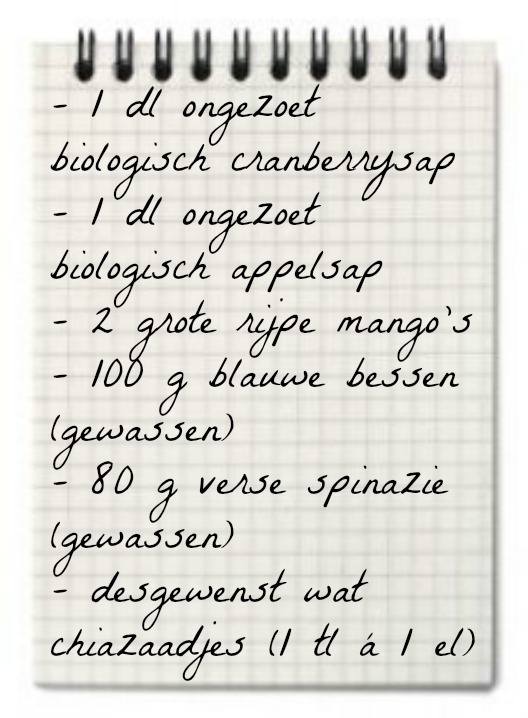 - 1 dl ongezoet
biologisch cranberrysap
- 1 dl ongezoet
biologisch appelsap
- 2 grote rijpe mango's
- 100 g blauwe bessen
(gewassen)
- 80 g verse spinazie
(gewassen)
- desgewenst wat
chiazaadjes (1 tl á 1 el)